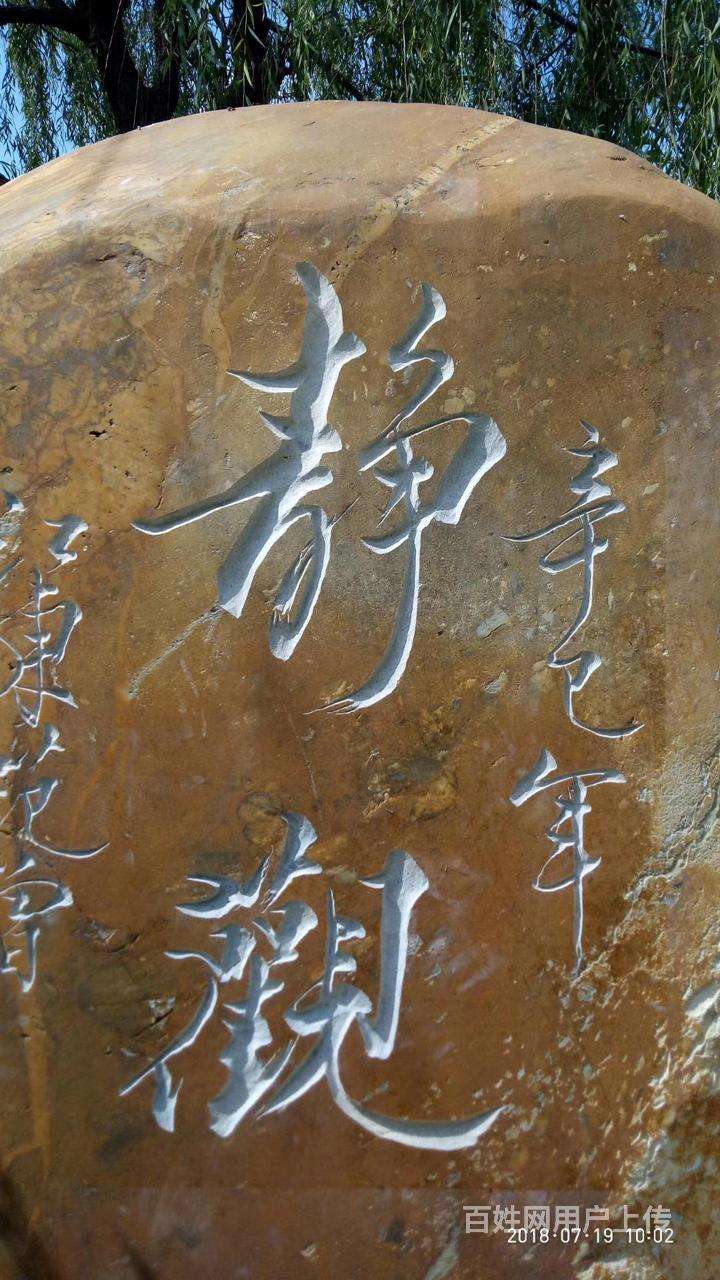 辛巳年
静觀
江東范曾
百姓网用户上传
2018·07·19 10:02